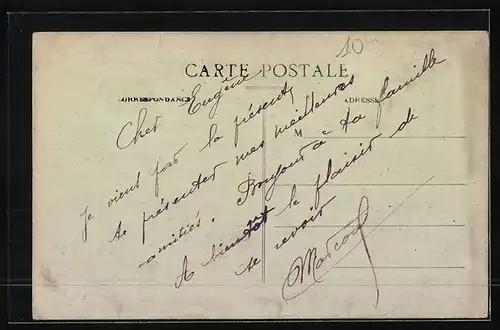 10
CARTE POSTALE
CORRESPONDANCE
ADRESSE
M
Cher Eugène
Je viens par la présent,
te présenter mes meilleures
amitiés. Bonjour à ta famille
A bientôt le plaisir de
te revoir
Marcel